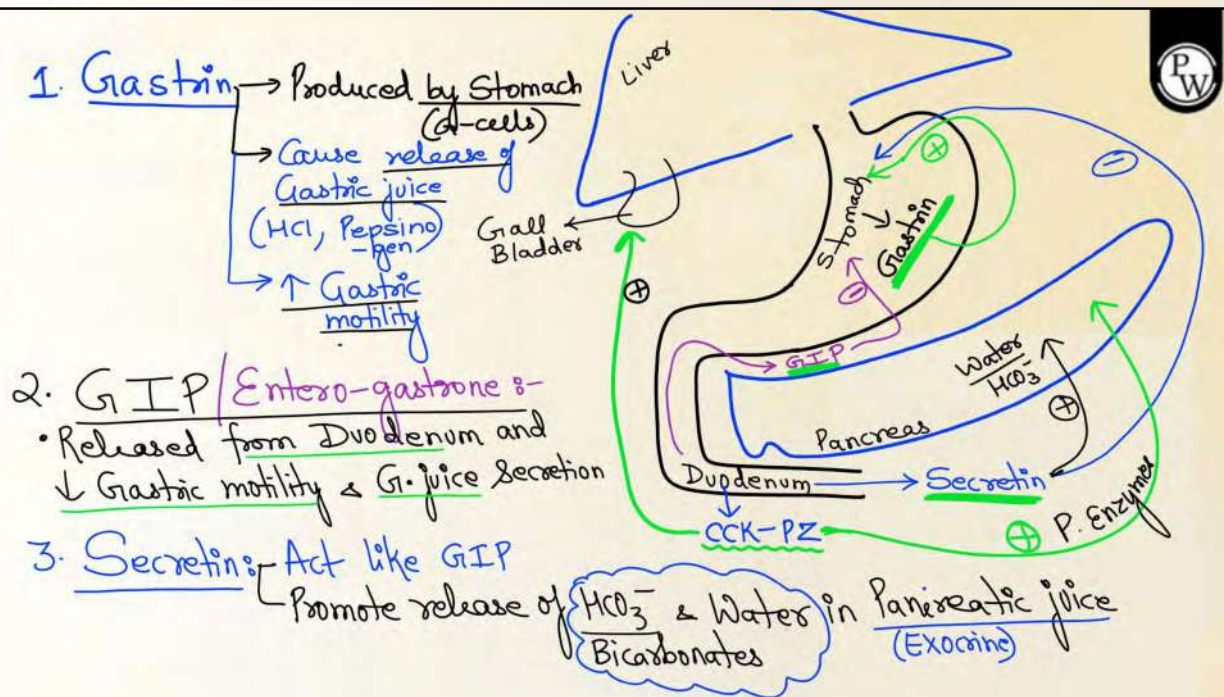 1. Gastrin → Produced by Stomach
(G-cells)
→ Cause release of
Gastric juice
(HCl, Pepsino
-gen)
→ ↑ Gastric
motility
2. GIP / Entero-gastrone :-
• Released from Duodenum and
↓ Gastric motility & G. juice secretion
3. Secretin :- Act like GIP
Promote release of HCO₃⁻ & Water in Panireatic juice
Bicarbonates (Exocrine)
Liver
Gall
Bladder
Stomach
→ Gastrin
⊕
⊖
⊖
⊕
GIP
Water
HCO₃⁻
⊕
Pancreas
Duodenum → Secretin
CCK-PZ
⊕ P. Enzymes
PW